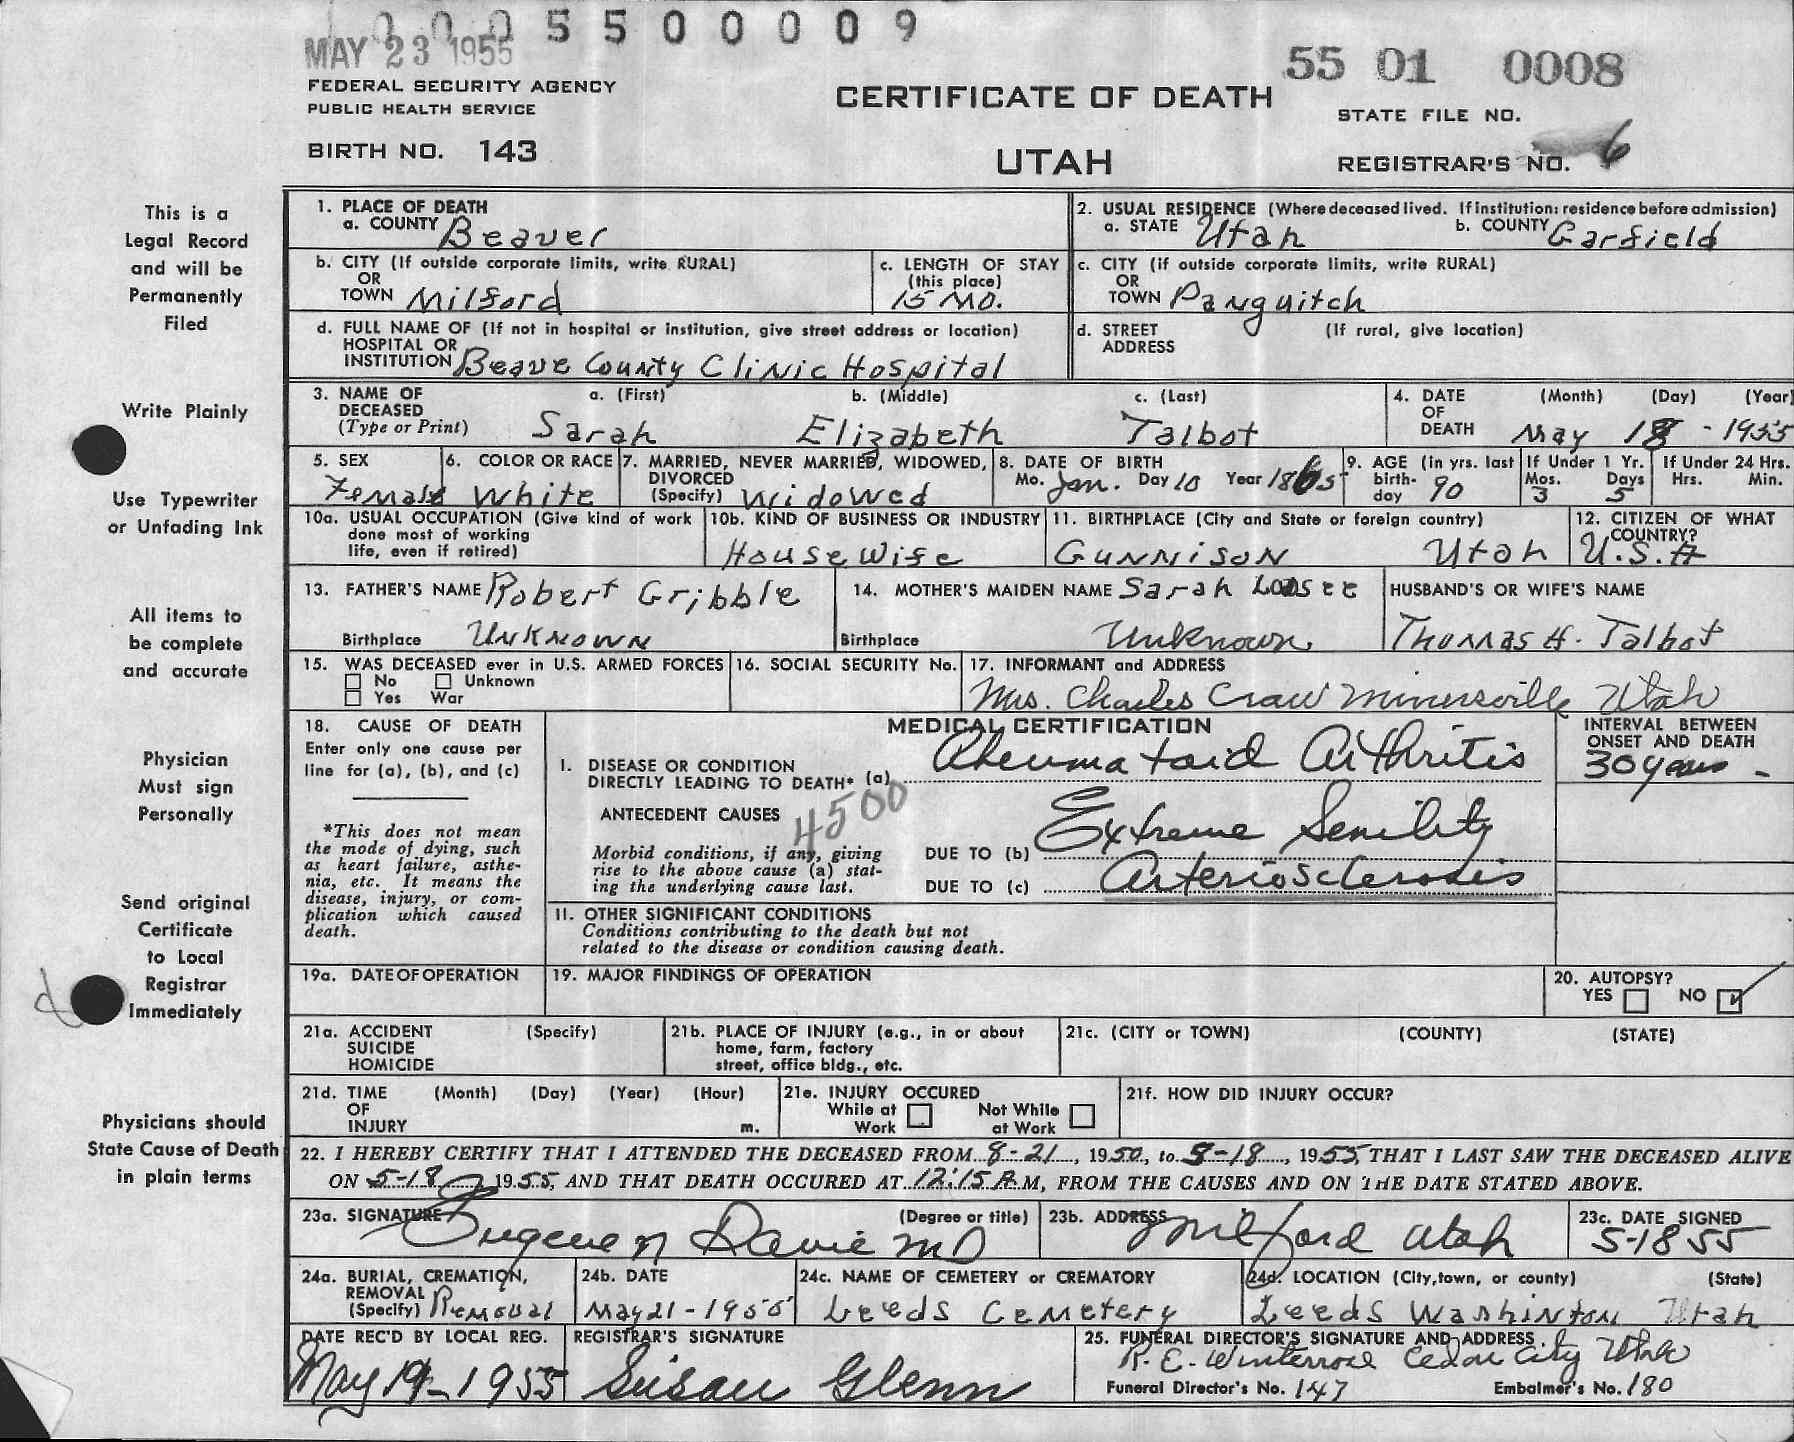 0 0 0 5 5 0 0 0 0 9
MAY 23 1955
55 01 0008
FEDERAL SECURITY AGENCY
PUBLIC HEALTH SERVICE
CERTIFICATE OF DEATH
STATE FILE NO.
BIRTH NO. 143
UTAH
REGISTRAR'S NO. 6
This is a
Legal Record
and will be
Permanently
Filed
Write Plainly
Use Typewriter
or Unfading Ink
All items to
be complete
and accurate
Physician
Must sign
Personally
Send original
Certificate
to Local
Registrar
Immediately
Physicians should
State Cause of Death
in plain terms
1. PLACE OF DEATH
a. COUNTY Beaver
2. USUAL RESIDENCE (Where deceased lived. If institution: residence before admission)
a. STATE Utah b. COUNTY Garfield
b. CITY (If outside corporate limits, write RURAL)
OR
TOWN Milford
c. LENGTH OF STAY
(this place)
15 Mo.
c. CITY (if outside corporate limits, write RURAL)
OR
TOWN Panguitch
d. FULL NAME OF (If not in hospital or institution, give street address or location)
HOSPITAL OR
INSTITUTION Beave County Clinic Hospital
d. STREET (If rural, give location)
ADDRESS
3. NAME OF a. (First) b. (Middle) c. (Last)
DECEASED
(Type or Print) Sarah Elizabeth Talbot
4. DATE (Month) (Day) (Year)
OF
DEATH May 18 - 1955
5. SEX
Female
6. COLOR OR RACE
White
7. MARRIED, NEVER MARRIED, WIDOWED,
DIVORCED
(Specify) Widowed
8. DATE OF BIRTH
Mo. Jan. Day 10 Year 1865
9. AGE (in yrs. last
birth-
day 90
If Under 1 Yr.
Mos. Days
3 5
If Under 24 Hrs.
Hrs. Min.
10a. USUAL OCCUPATION (Give kind of work
done most of working
life, even if retired)
10b. KIND OF BUSINESS OR INDUSTRY
House Wife
11. BIRTHPLACE (City and State or foreign country)
Gunnison Utah
12. CITIZEN OF WHAT
COUNTRY?
U.S.A
13. FATHER'S NAME Robert Gribble
Birthplace Unknown
14. MOTHER'S MAIDEN NAME Sarah Losee
Birthplace Unknown
HUSBAND'S OR WIFE'S NAME
Thomas H. Talbot
15. WAS DECEASED ever in U.S. ARMED FORCES
No Unknown
Yes War
16. SOCIAL SECURITY No.
17. INFORMANT and ADDRESS
Mrs. Charles Craw Minersville Utah
18. CAUSE OF DEATH
Enter only one cause per
line for (a), (b), and (c)
*This does not mean
the mode of dying, such
as heart failure, asthe-
nia, etc. It means the
disease, injury, or com-
plication which caused
death.
MEDICAL CERTIFICATION
I. DISEASE OR CONDITION
DIRECTLY LEADING TO DEATH* (a) Rheumatoid Arthritis
ANTECEDENT CAUSES
4500
Morbid conditions, if any, giving
rise to the above cause (a) stat-
ing the underlying cause last.
DUE TO (b) Extreme Senility
DUE TO (c) Arteriosclerosis
INTERVAL BETWEEN
ONSET AND DEATH
30 years -
II. OTHER SIGNIFICANT CONDITIONS
Conditions contributing to the death but not
related to the disease or condition causing death.
19a. DATE OF OPERATION
19. MAJOR FINDINGS OF OPERATION
20. AUTOPSY?
YES NO
21a. ACCIDENT (Specify)
SUICIDE
HOMICIDE
21b. PLACE OF INJURY (e.g., in or about
home, farm, factory
street, office bldg., etc.
21c. (CITY or TOWN) (COUNTY) (STATE)
21d. TIME (Month) (Day) (Year) (Hour)
OF
INJURY m.
21e. INJURY OCCURED
While at Not While
Work at Work
21f. HOW DID INJURY OCCUR?
22. I HEREBY CERTIFY THAT I ATTENDED THE DECEASED FROM 8-21, 1950, to 5-18, 1955, THAT I LAST SAW THE DECEASED ALIVE
ON 5-18, 1955, AND THAT DEATH OCCURED AT 12:15 A M, FROM THE CAUSES AND ON THE DATE STATED ABOVE.
23a. SIGNATURE (Degree or title)
Eugene N Davie MD
23b. ADDRESS
Milford Utah
23c. DATE SIGNED
5-18 55
24a. BURIAL, CREMATION,
REMOVAL
(Specify) Removal
24b. DATE
May 21 - 1955
24c. NAME OF CEMETERY or CREMATORY
Leeds Cemetery
24d. LOCATION (City, town, or county) (State)
Leeds Washinton Utah
DATE REC'D BY LOCAL REG.
May 19-1955
REGISTRAR'S SIGNATURE
Susan Glenn
25. FUNERAL DIRECTOR'S SIGNATURE AND ADDRESS
R. E. Winterrose Cedar City Utah
Funeral Director's No. 147 Embalmer's No. 180